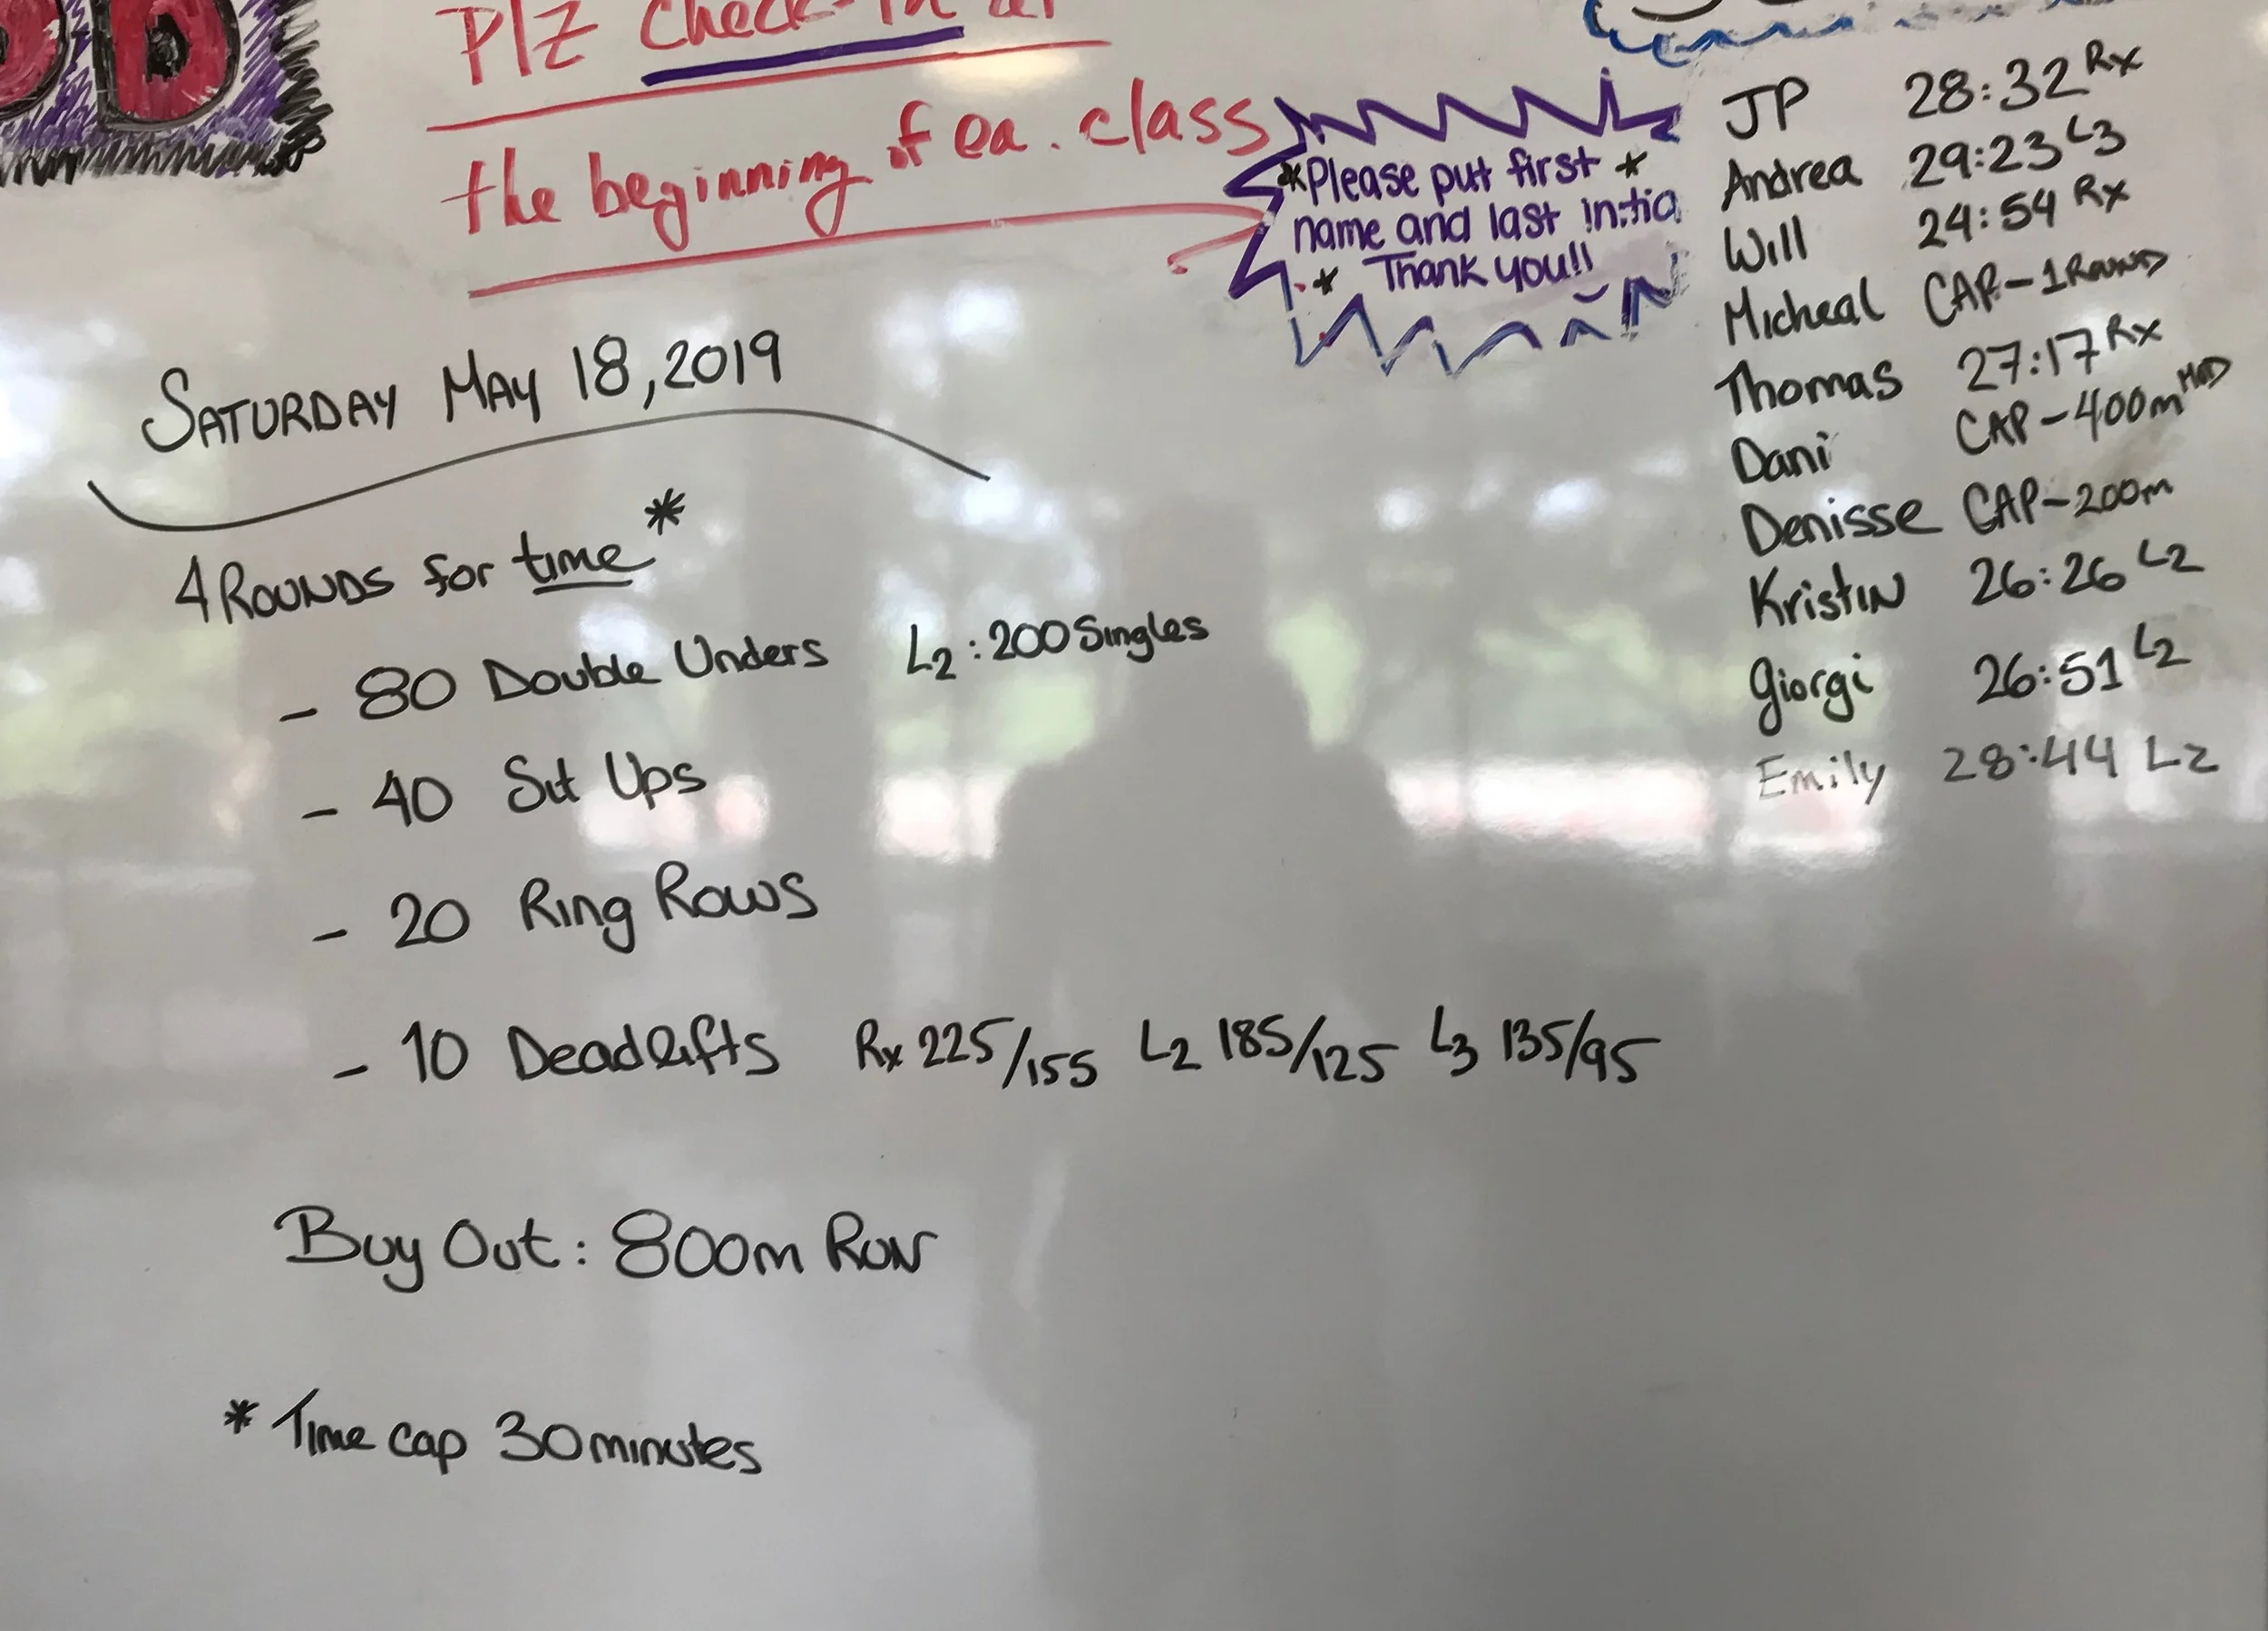 Plz Check-in at
the beginning of ea. class
*Please put first *
name and last initia
* Thank you!!
SATURDAY MAY 18, 2019
4 ROUNDS for time *
- 80 Double Unders L2: 200 Singles
- 40 Sit Ups
- 20 Ring Rows
- 10 Deadlifts Rx 225/155 L2 185/125 L3 135/95
Buy Out: 800m Run
* Time cap 30 minutes
JP 28:32 Rx
Andrea 29:23 L3
Will 24:54 Rx
Micheal CAP-1 ROUND
Thomas 27:17 Rx
Dani CAP-400m MOD
Denisse CAP-200m
Kristin 26:26 L2
Giorgi 26:51 L2
Emily 28:44 L2